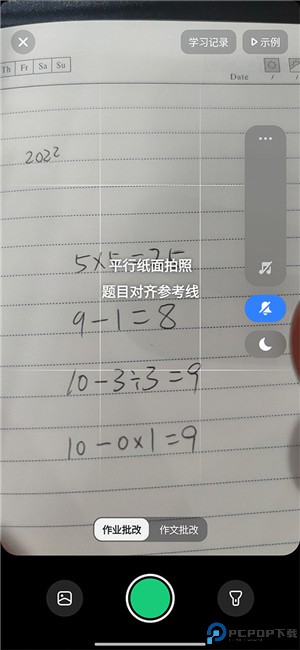 学习记录
示例
Th Fr Sa Su
Date / /
2022
5×5=25
平行纸面拍照
题目对齐参考线
9-1=8
10-3÷3=9
10-0×1=9
作业批改 作文批改
PCPOP下载